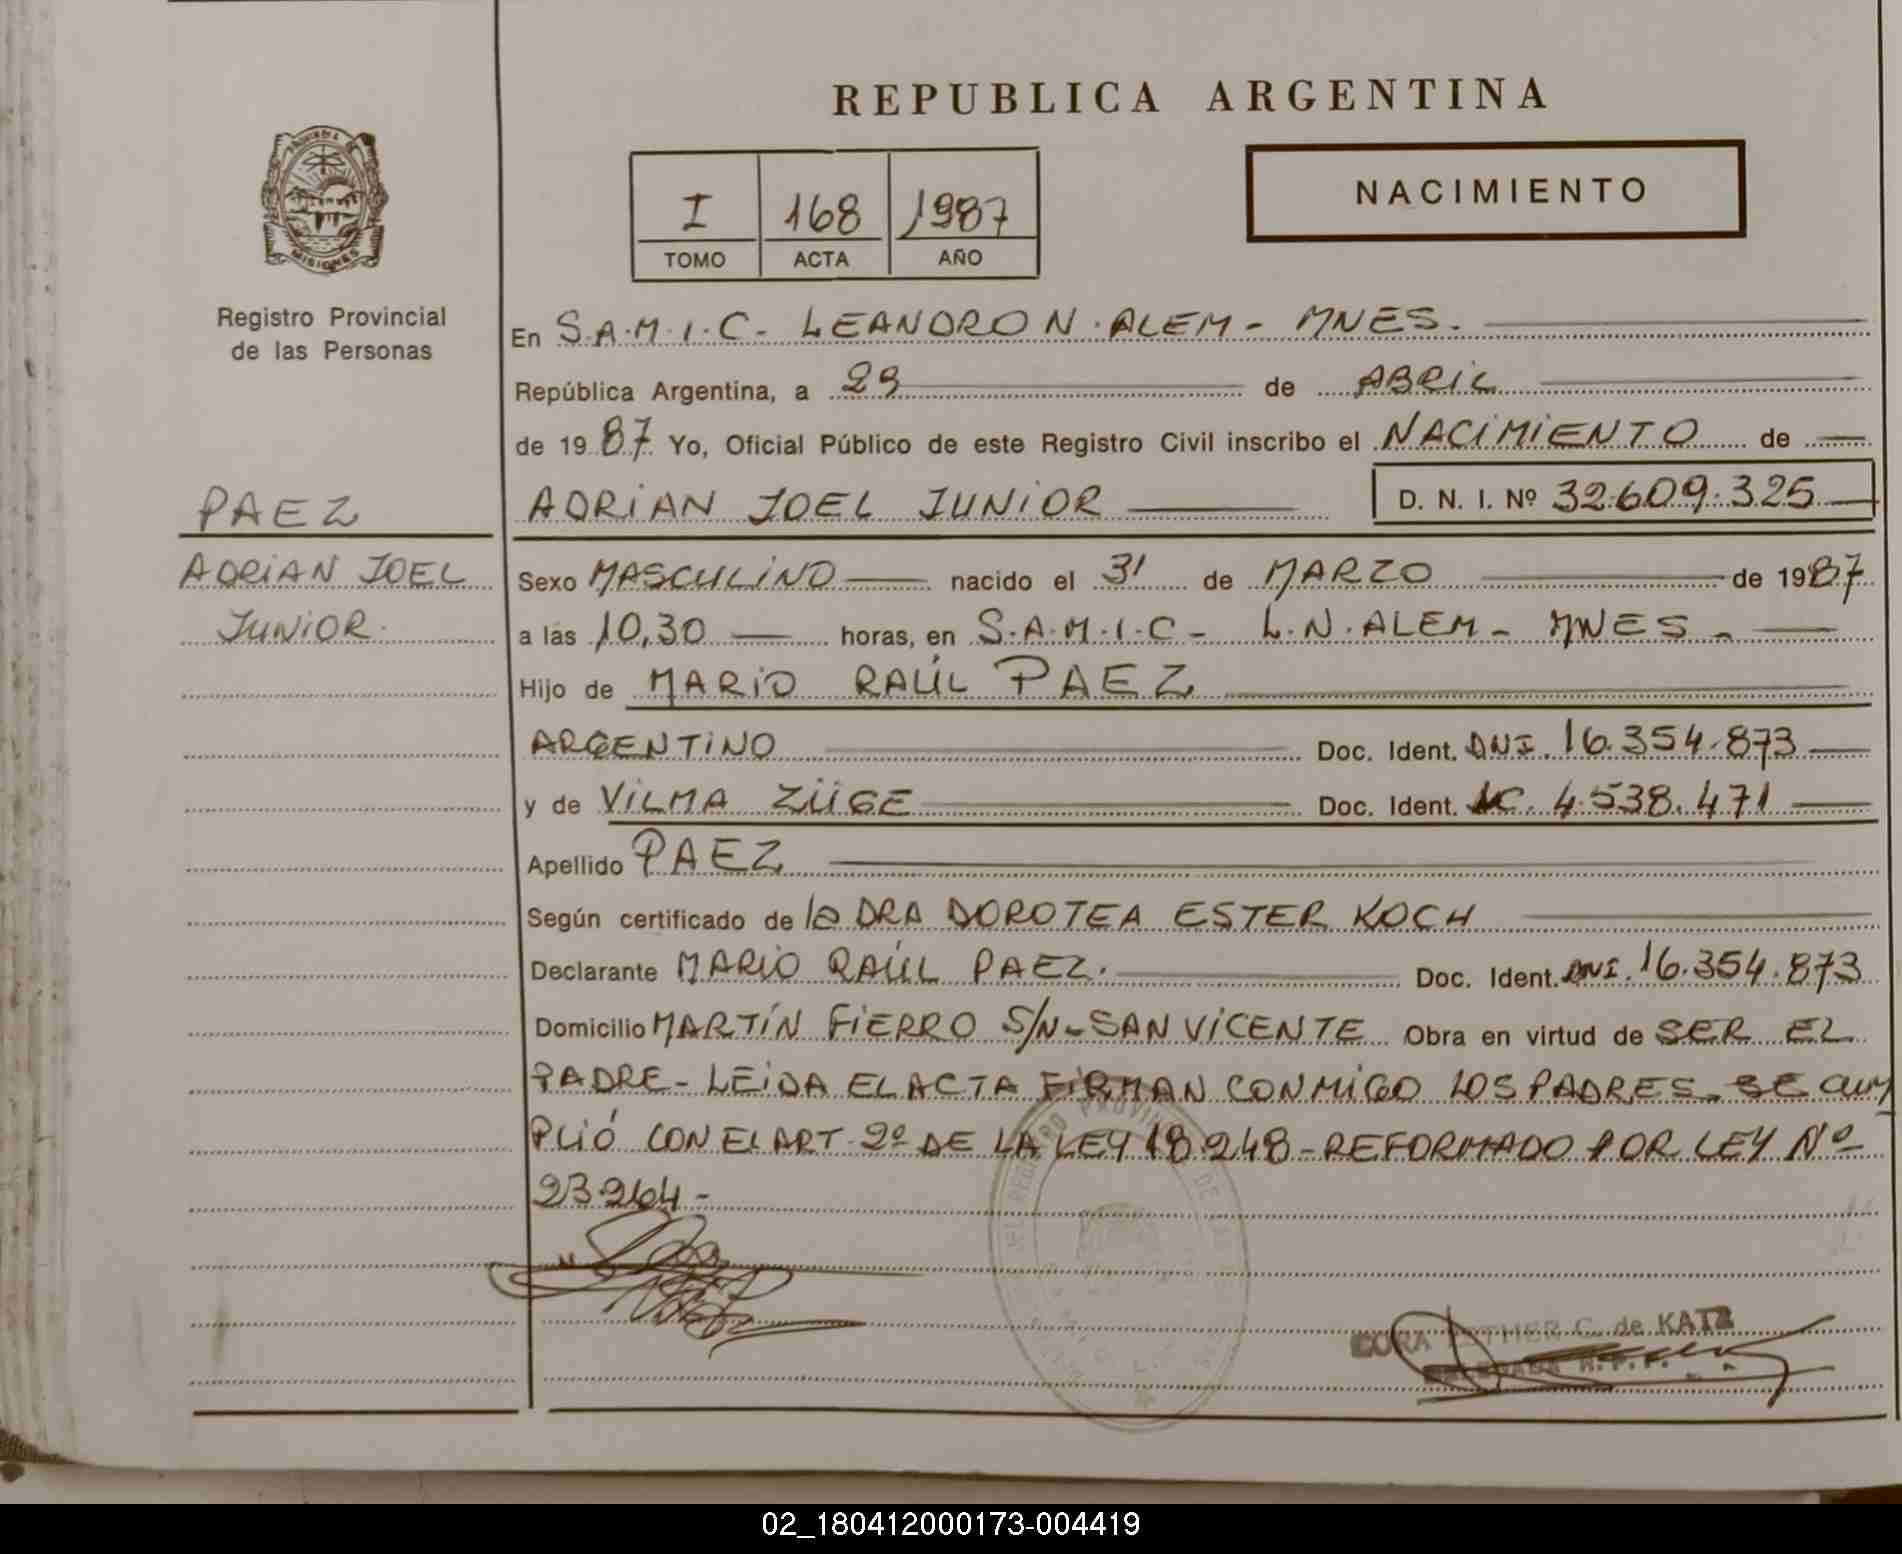 REPUBLICA ARGENTINA
NACIMIENTO
I 168 1987
TOMO ACTA AÑO
MISIONES
Registro Provincial
de las Personas
En S.A.M.I.C - LEANDRO N. ALEM - MNES.
República Argentina, a 29 de ABRIL
de 1987 Yo, Oficial Público de este Registro Civil inscribo el NACIMIENTO de
PAEZ
ADRIAN JOEL JUNIOR D. N. I. Nº 32.609.325
ADRIAN JOEL
JUNIOR.
Sexo MASCULINO nacido el 31 de MARZO de 1987
a las 10,30 horas, en S.A.M.I.C - L.N. ALEM - MNES -
Hijo de MARIO RAÚL PAEZ
ARGENTINO Doc. Ident. DNI. 16.354.873
y de VILMA ZÜGE Doc. Ident. LC. 4.538.471
Apellido PAEZ
Según certificado de la DRA DOROTEA ESTER KOCH
Declarante MARIO RAÚL PAEZ. Doc. Ident. DNI. 16.354.873
Domicilio MARTÍN FIERRO S/N - SAN VICENTE Obra en virtud de SER EL
PADRE - LEIDA EL ACTA FIRMAN CONMIGO LOS PADRES. SE CUM
PLIÓ CON EL ART. 2º DE LA LEY 18.248 - REFORMADO POR LEY Nº
23.264 -
REGISTRO PROVIN DE LAS
C. de KATZ
02_180412000173-004419